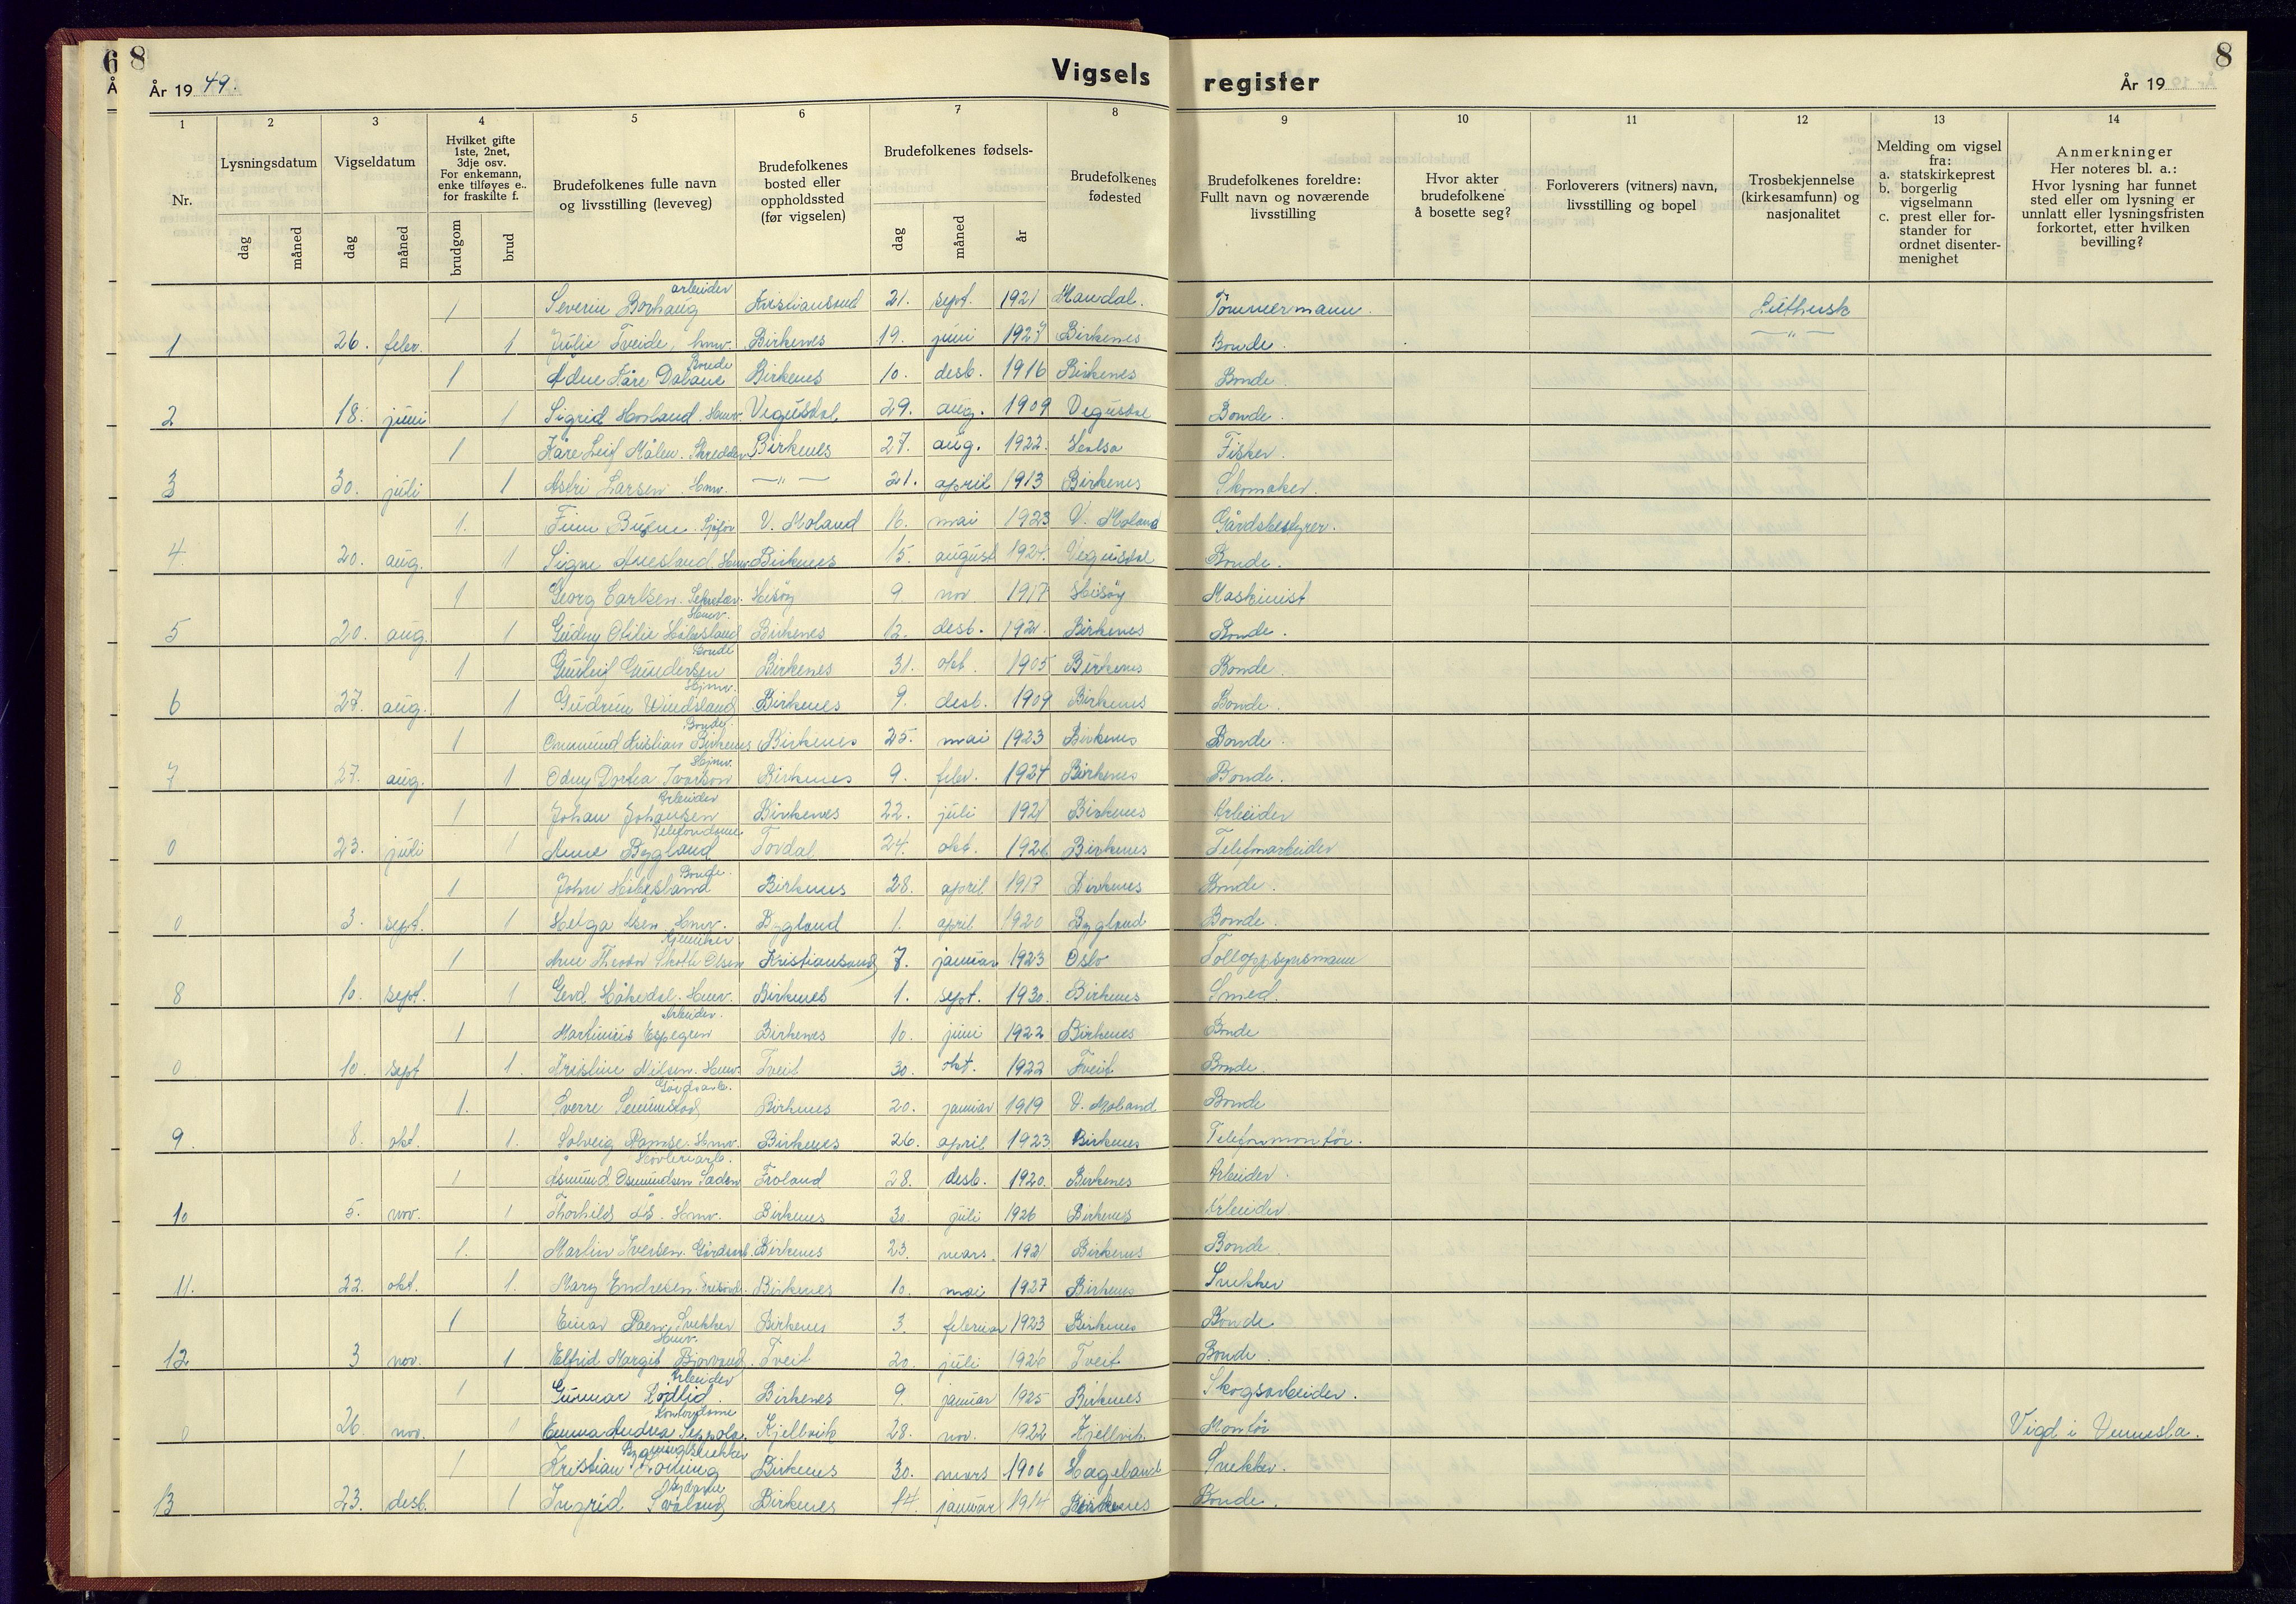 6 8
8
År 19 49.
Vigsels
register
År 19
1 2 3 4 5 6 7 8
9 10 11 12 13 14
Nr.
Lysningsdatum
dag måned
Vigseldatum
dag måned
Hvilket gifte
1ste, 2net,
3dje osv.
For enkemann,
enke tilføyes e..
for fraskilte f.
brudgom brud
Brudefolkenes fulle navn
og livsstilling (leveveg)
Brudefolkenes
bosted eller
oppholdssted
(før vigselen)
Brudefolkenes fødsels-
dag måned år
Brudefolkenes
fødested
Brudefolkenes foreldre:
Fullt navn og noværende
livsstilling
Hvor akter
brudefolkene
å bosette seg?
Forloverers (vitners) navn,
livsstilling og bopel
Trosbekjennelse
(kirkesamfunn) og
nasjonalitet
Melding om vigsel
fra:
a. statskirkeprest
b. borgerlig
vigselmann
c. prest eller for-
stander for
ordnet disenter-
menighet
Anmerkninger
Her noteres bl. a.:
Hvor lysning har funnet
sted eller om lysning er
unnlatt eller lysningsfristen
forkortet, etter hvilken
bevilling?
1 Severin Borhaug arbeider Kristiansand 21. sept. 1921 Mandal. Tömmermann. Luthersk
1 26. febr. 1 Julie Tveide, hmv. Birkenes 19. juni 1927 Birkenes Bonde. —"—
1 Kåre Dalane Bonde Birkenes 10. desb. 1916 Birkenes Bonde.
2 18. juni 1 Sigrid Hovland. Hmv. Vegusdal 29. aug. 1909 Vegusdal Bonde.
1 Kåre Leif Målen. Skredder Birkenes 27. aug. 1922. Fisker.
3 30. juli 1 Astri Larsen. Hmv. —"— 21. april 1913 Birkenes Skomaker.
1. Finn Sjåför V. Moland 16. mai 1923 V. Moland Gårdsbestyrer.
4 20. aug. 1 Signe Hmv. Birkenes 15. august 1924. Vegusdal Bonde.
1 Georg Carlsen. Sekretær. Hisöy 9 nov 1917 Hisöy Maskinist
5 20. aug. 1 Gudny Otilie Håbesland Hmv. Birkenes 12. desb. 1921. Birkenes Bonde.
1 Gunleif Gundersen Bonde Birkenes 31. okt. 1905 Birkenes Bonde.
6 27. aug. 1 Gudrun Windsland Hjmv. Birkenes 9. desb. 1909 Birkenes Bonde.
1 Kristian Birkenes Bonde. Birkenes 25. mai 1923 Birkenes Bonde.
7 27. aug. 1 Odny Dortea Ivarson Hjmv. Birkenes 9. febr. 1924 Birkenes Bonde.
1 Johan Johansen Arbeider Birkenes 22. juli 1921 Birkenes Arbeider
0 23. juli 1 Anne Bygland Telefondame Tovdal 24. okt. 1926 Birkenes Telefonarbeider
1 John Håbesland Bonde. Birkenes 28. april 1917 Birkenes Bonde.
0 3. sept. 1 Helga Hmv. Bygland 1. april 1920 Bygland Bonde.
1 Arne Theodor Olsen Kjemiker Kristiansand 7. januar 1923 Oslo Tolloppsynsmann
8 10. sept. 1 Gerd Håkedal. Hmv. Birkenes 1. sept. 1930. Birkenes Smed.
1 Martinius Espegren Arbeider. Birkenes 10. juni 1922 Birkenes Bonde
0 10. sept 1. Kristine Nilsen. Hmv Tveit 30. okt. 1922 Tveit Bonde.
1. Sverre Gårdsarb. Birkenes 20. januar 1919 V. Moland Bonde
9. 8. okt. 1. Solveig Ramse. Hmv. Birkenes 26. april 1923 Birkenes Telefonmontör.
1 Åsmund Osmundsen Høvleriarb. Froland 28. desb. 1920. Birkenes Arbeider.
10 5. nov. 1 Thorhild Ås. Hmv. Birkenes 30. juli 1926 Birkenes Arbeider.
1. Martin Iversen. Gårdsarb. Birkenes 23. mars. 1921 Birkenes Bonde
11. 22. okt. 1. Mary Endresen. Birkenes 10. mai 1927 Birkenes Snekker
1 Einar Roen. Snekker Birkenes 3. februar 1923 Birkenes Bonde
12 3 nov. 1 Elfrid Margit Bjorvand. Hmv. Tveit 20. juli 1926 Tveit Bonde.
1 Gunnar Rødlid. Arbeider Birkenes 9. januar 1925 Birkenes Skogsarbeider.
0 26. nov. 1 Emma Andrea Kontordame Kjellvik 28. nov. 1922 Kjellvik Montör Vigd i Vennesla.
1 Kristian Bygningssnekker Birkenes 30. mars 1906 Hægeland Snekker.
13 23. desb. 1 Ingrid Svaland Sydame Birkenes 14. januar 1914 Birkenes Bonde.